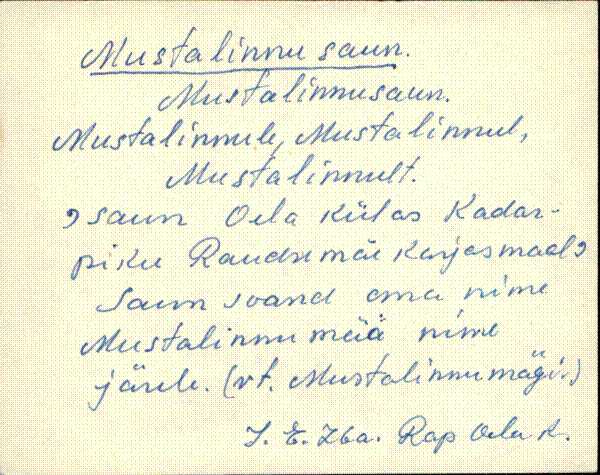 Mustalinnu saun.
Mustalinnusaun.
Mustalinnule, Mustalinnul,
Mustalinnult.
saun Oela külas Kadar-
piku Raudsmäe karjasmaal
Saun soand oma nime
Mustalinnu mää nime
järele. (vt. Mustalinnumägi.)
J. E. Rap Oela k.